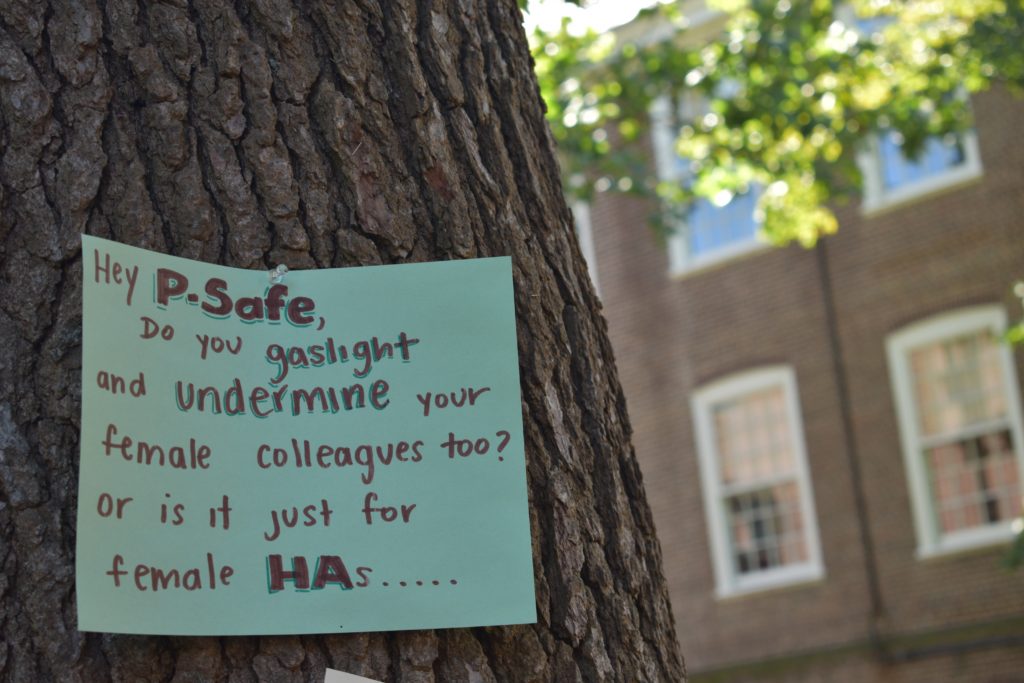 Hey P.Safe,
Do you gaslight
and undermine your
female colleagues too?
or is it just for
female HAs.....